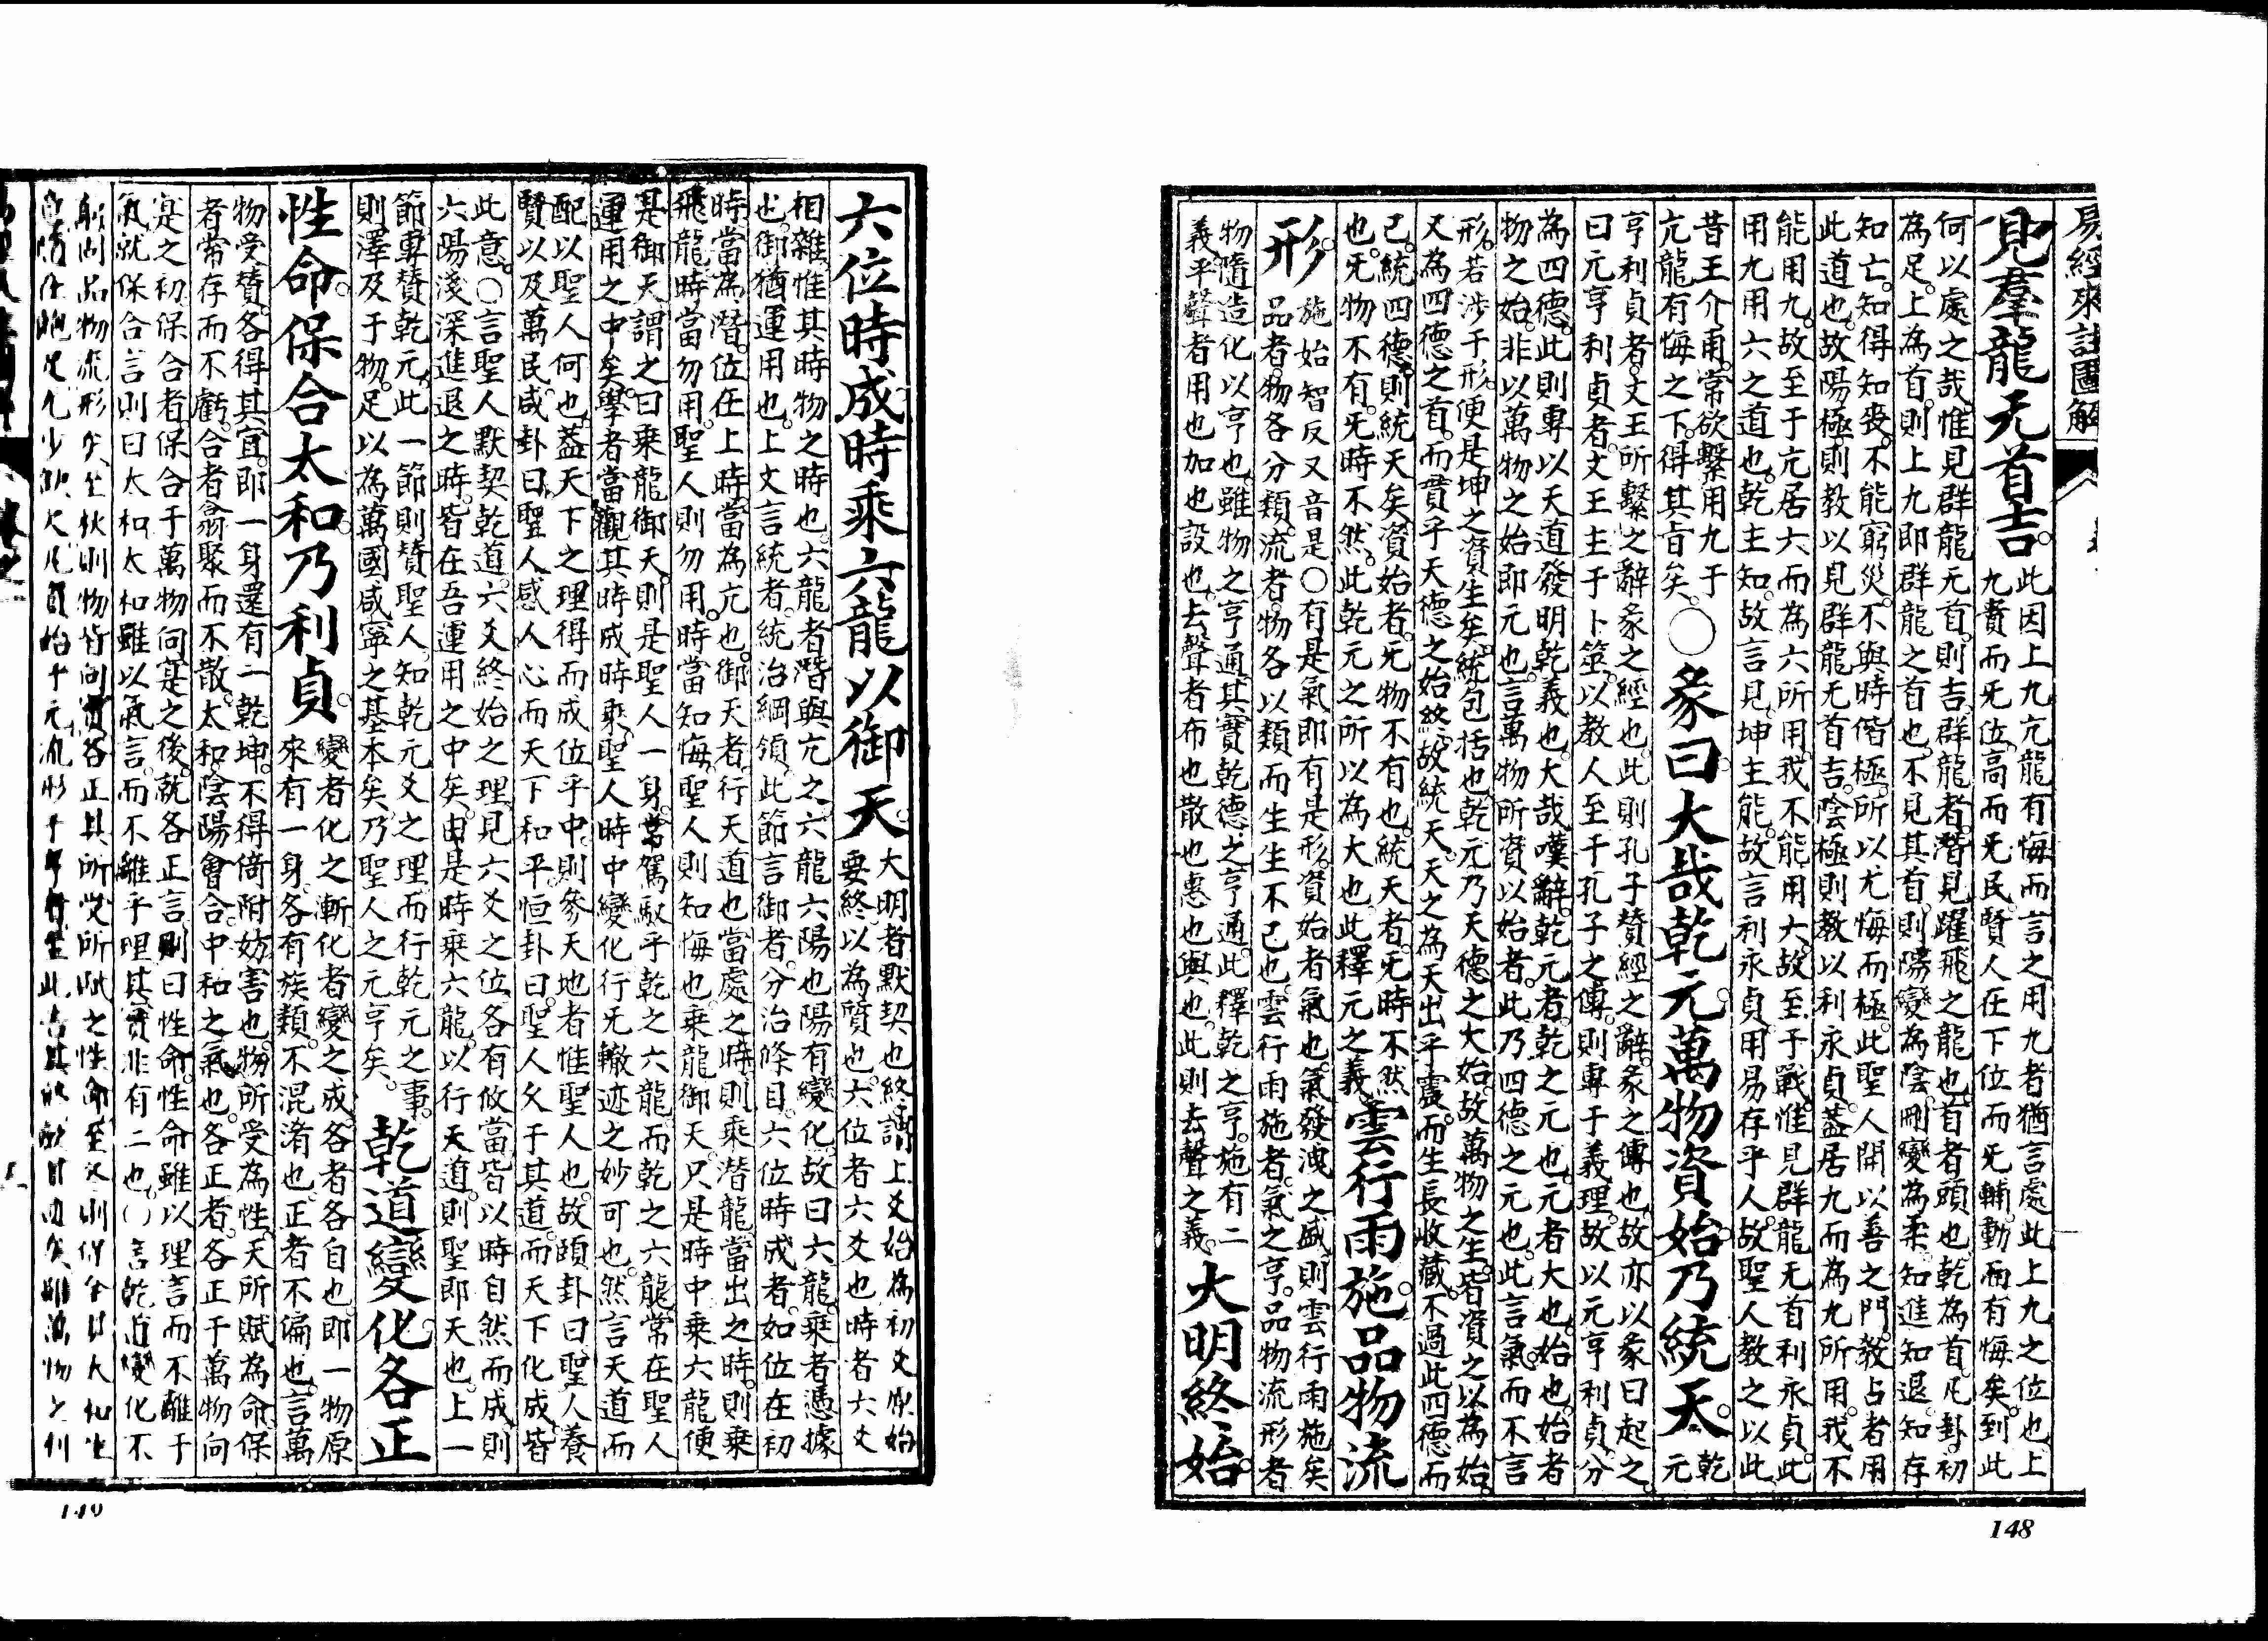 易經來註圖解
見羣龍无首吉
此因上九亢龍有悔而言之用九者猶言處此上九之位也上
九貴而旡位高而旡民賢人在下位而旡輔動而有悔矣到此
何以處之哉惟見群龍无首則吉群龍者潛見躍飛之龍也首者頭也乾為首凡卦初
為足上為首則上九即群龍之首也不見其首則陽變為陰剛變為柔知進知退知存
知亡知得知喪不能窮災不與時偕極所以尤悔而極此聖人開以善之門教占者用
此道也故陽極則教以見群龍无首吉陰極則教以利永貞蓋居九而為九所用我不
能用九故至于亢居六而為六所用我不能用六故至于戰惟見群龍无首利永貞此
用九用六之道也乾主知故言見坤主能故言利永貞用易存乎人故聖人教之以此
昔王介甫常欲繫用九于
亢龍有悔之下得其旨矣
○彖曰大哉乾元萬物資始乃統天
乾
元
亨利貞者文王所繫之辭彖之經也此則孔子贊經之辭彖之傳也故亦以彖曰起之
曰元亨利貞者文王主于卜筮以教人至于孔子之傳則專于義理故以元亨利貞分
為四德此則專以天道發明乾義也大哉嘆辭乾元者乾之元也元者大也始也始者
物之始非以萬物之始即元也言萬物所資以始者此乃四德之元也此言氣而不言
形若涉于形便是坤之資生矣統包括也乾元乃天德之大始故萬物之生皆資之以為始
又為四德之首而貫乎天德之始終故統天天之為天出乎震而生長收藏不過此四德而
已統四德則統天矣資始者旡物不有也統天者旡時不然
也旡物不有旡時不然此乾元之所以為大也此釋元之義
雲行雨施品物流
形
施始智反又音是○有是氣即有是形資始者氣也氣發洩之盛則雲行雨施矣
品者物各分類流者物各以類而生生不已也雲行雨施者氣之亨品物流形者
物隨造化以亨也雖物之亨通其實乾德之亨通此釋乾之亨施有二
義平聲者用也加也設也去聲者布也散也惠也與也此則去聲之義
大明終始
148
六位時成時乘六龍以御天
大明者默契也終謂上爻始為初爻原始
要終以為質也六位者六爻也時者六爻
相雜惟其時物之時也六龍者潛與亢之六龍六陽也陽有變化故曰六龍乘者憑據
也御猶運用也上文言統者統治綱領此節言御者分治條目六位時成者如位在初
時當為潛位在上時當為亢也御天者行天道也當處之時則乘潛龍當出之時則乘
飛龍時當勿用聖人則勿用時當知悔聖人則知悔也乘龍御天只是時中乘六龍便
是御天謂之曰乘龍御天則是聖人一身常駕馭乎乾之六龍而乾之六龍常在聖人
運用之中矣學者當觀其時成時乘聖人時中變化行无轍迹之妙可也然言天道而
配以聖人何也蓋天下之理得而成位乎中則參天地者惟聖人也故頤卦曰聖人養
賢以及萬民咸卦曰聖人感人心而天下和平恒卦曰聖人久于其道而天下化成皆
此意○言聖人默契乾道六爻終始之理見六爻之位各有攸當皆以時自然而成則
六陽淺深進退之時皆在吾運用之中矣由是時乘六龍以行天道則聖即天也上一
節專贊乾元此一節則贊聖人知乾元爻之理而行乾元之事
則澤及于物足以為萬國咸寧之基本矣乃聖人之元亨矣
乾道變化各正
性命保合太和乃利貞
變者化之漸化者變之成各者各自也即一物原
來有一身各有族類不混淆也正者不偏也言萬
物受贊各得其宜即一身還有一乾坤不得倚附妨害也物所受為性天所賦為命保
者常存而不虧合者翕聚而不散太和陰陽會合中和之氣也各正者各正于萬物向
是之初保合者保合于萬物向是之後就各正言則曰性命性命雖以理言而不離于
氣就保合言則曰太和太和雖以氣言而不離乎理其實非有二也○言乾道變化不
149